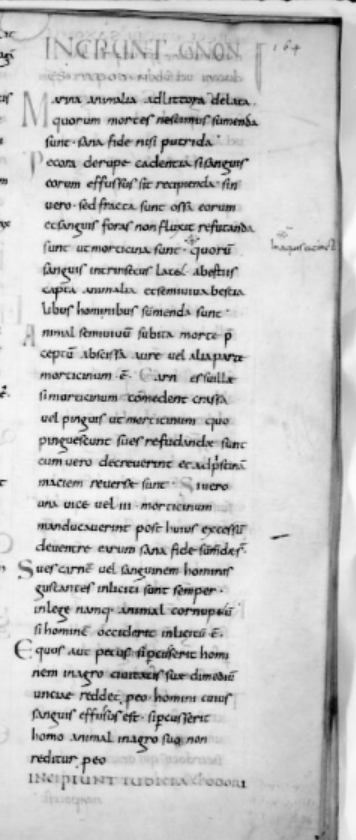 INCPIUNT CANON
164
Marina animalia adlittora delata
quorum mortes nescimus sumenda
sunt sana fide nisi putrida
Pecora derupe cadentia sisanguis
eorum effussus sit recipienda sin
uero sed fracta sunt ossa eorum
et sanguis foras non fluxit refutanda
sunt ut morticina sunt quorū
sanguis intrinsecus
capta animalia et semiuiua bestia
libus hominibus sumenda sunt
Animal semiuiuū subita morte p
ceptū abscissa aure uel alia parte
morticinum ē. Carn es suillæ
si morticinum comedent crassa
uel pinguis ut morticinum quo
pinguescunt sues refudandæ sunt
cum uero decreuerint et adpstinā
maciem reuersæ sunt Siuero
una uice uel iii morticinum
manducauerint post huius excessū
deuentre earum sana fide
Sues carnē uel sanguinem hominis
gustantes inliciti sunt semper
inlege namq. animal cornupetū
si hominē occiderit inlicitū ē.
Equus aut pecus si pcusserit homi
nem inagro ciuitatis suæ dimediū
unciae reddet peo homini cuius
sanguis effusus est si pcusserit
homo animal inagro suo non
reditur peo
INCIPIUNT IUDICIA THEODORI